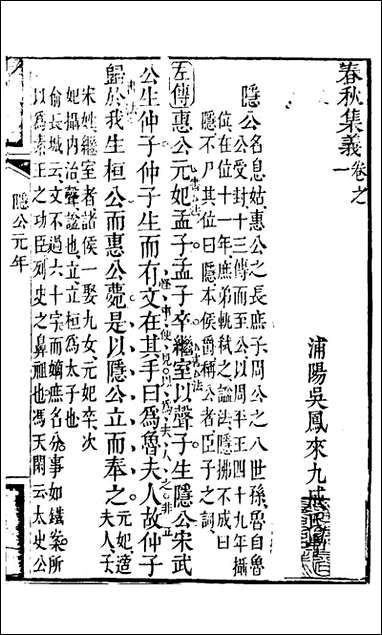 春秋集義卷之一
浦陽吳鳳來九成氏
隱公名息姑惠公之長庶子周公之八世孫魯自魯
公受封十三傳而至公以周平王四十九年攝
位在位十一年庶弟軌弒之諡法隱拂不成曰
隱不尸其位曰隱本侯爵稱公者臣子之詞
左傳惠公元妃孟子孟子卒繼室以聲子生隱公宋武
書法
公生仲子仲子生而有文在其手曰爲魯夫人故仲子
怪事便見以爲夫人之非正
書法
歸於我生桓公而惠公薨是以隱公立而奉之
書法
元妃適
夫人子
宋姓繼室者諸侯一娶九女元妃卒次
妃攝內治聲諡也立立桓爲太子也
俞長城云文不過六十字而嫡庶名分事如鐵案所
以爲素王之功臣列史之鼻祖也馮天閑云太史公
隱公元年